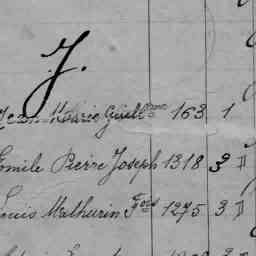 J.
Jean Marie Guill^me 163 1
Emile Pierre Joseph 1318 3 D
Louis Mathurin F^ois 1275 3 D